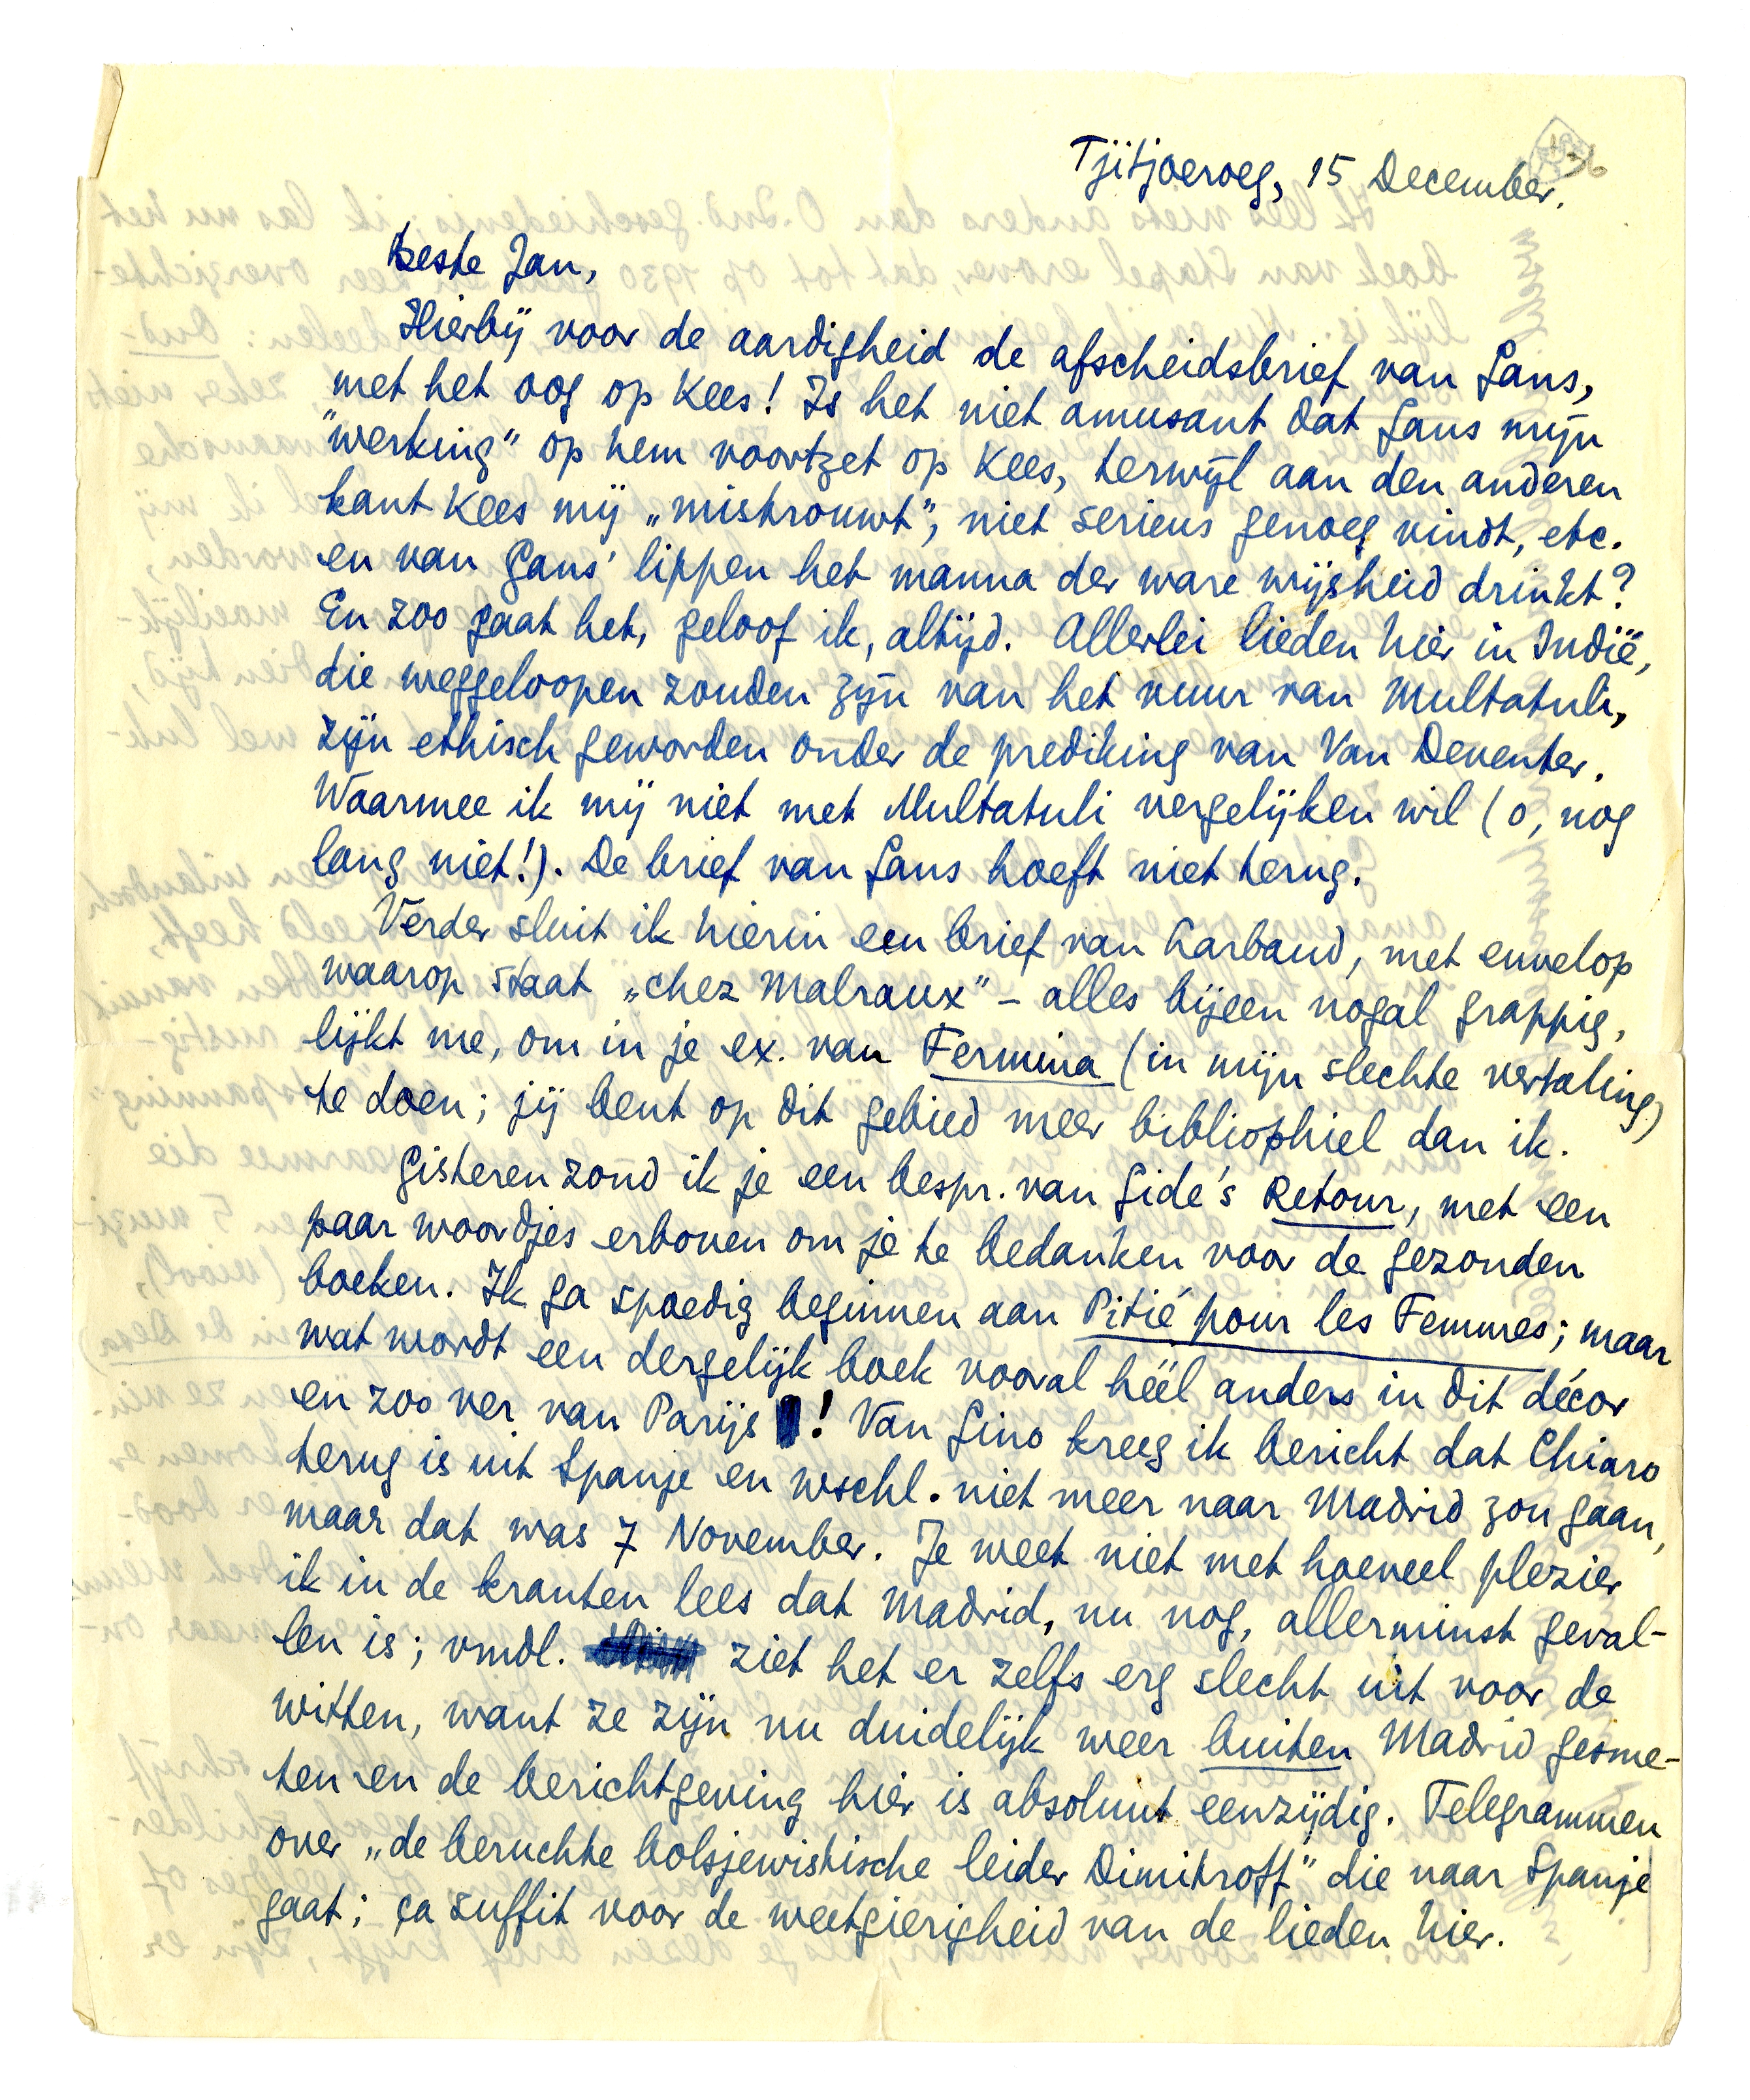 Tjitjoeroeg, 15 December.
36
Beste Jan,
Hierbij voor de aardigheid de afscheidsbrief van Gans,
met het oog op Kees! Is het niet amusant dat Gans mijn
"werking" op hem voortzet op Kees, terwijl aan den anderen
kant Kees mij „mistrouwt", niet serieus genoeg vindt, etc.
en van Gans' lippen het manna der ware wijsheid drinkt?
En zoo gaat het, geloof ik, altijd. Allerlei lieden hier in Indië,
die weggeloopen zouden zijn van het vuur van Multatuli,
zijn ethisch geworden onder de prediking van Van Deventer.
Waarmee ik mij niet met Multatuli vergelijken wil (o, nog
lang niet!). De brief van Gans hoeft niet terug.
Verder sluit ik hierin een brief van Larbaud, met envelop
waarop staat „chez Malraux" – alles bijeen nogal grappig,
lijkt me, om in je ex. van Fermina (in mijn slechte vertaling)
te doen; jij bent op dit gebied meer bibliophiel dan ik.
Gisteren zond ik je een bespr. van Gide's Retour, met een
paar woordjes erboven om je te bedanken voor de gezonden
boeken. Ik ga spoedig beginnen aan Pitié pour les Femmes; maar
wat wordt een dergelijk boek vooral héél anders in dit décor
en zoo ver van Parijs! Van Gino kreeg ik bericht dat Chiaro
terug is uit Spanje en wschl. niet meer naar Madrid zou gaan,
maar dat was 7 November. Je weet niet met hoeveel plezier
ik in de kranten lees dat Madrid, nu nog, allerminst geval-
len is; vmdl. ziet het er zelfs erg slecht uit voor de
witten, want ze zijn nu duidelijk weer buiten Madrid gesme-
ten en de berichtgeving hier is absoluut eenzijdig. Telegrammen
over „de beruchte bolsjewistische leider Dimitroff" die naar Spanje
gaat; ça suffit voor de weetgierigheid van de lieden hier.